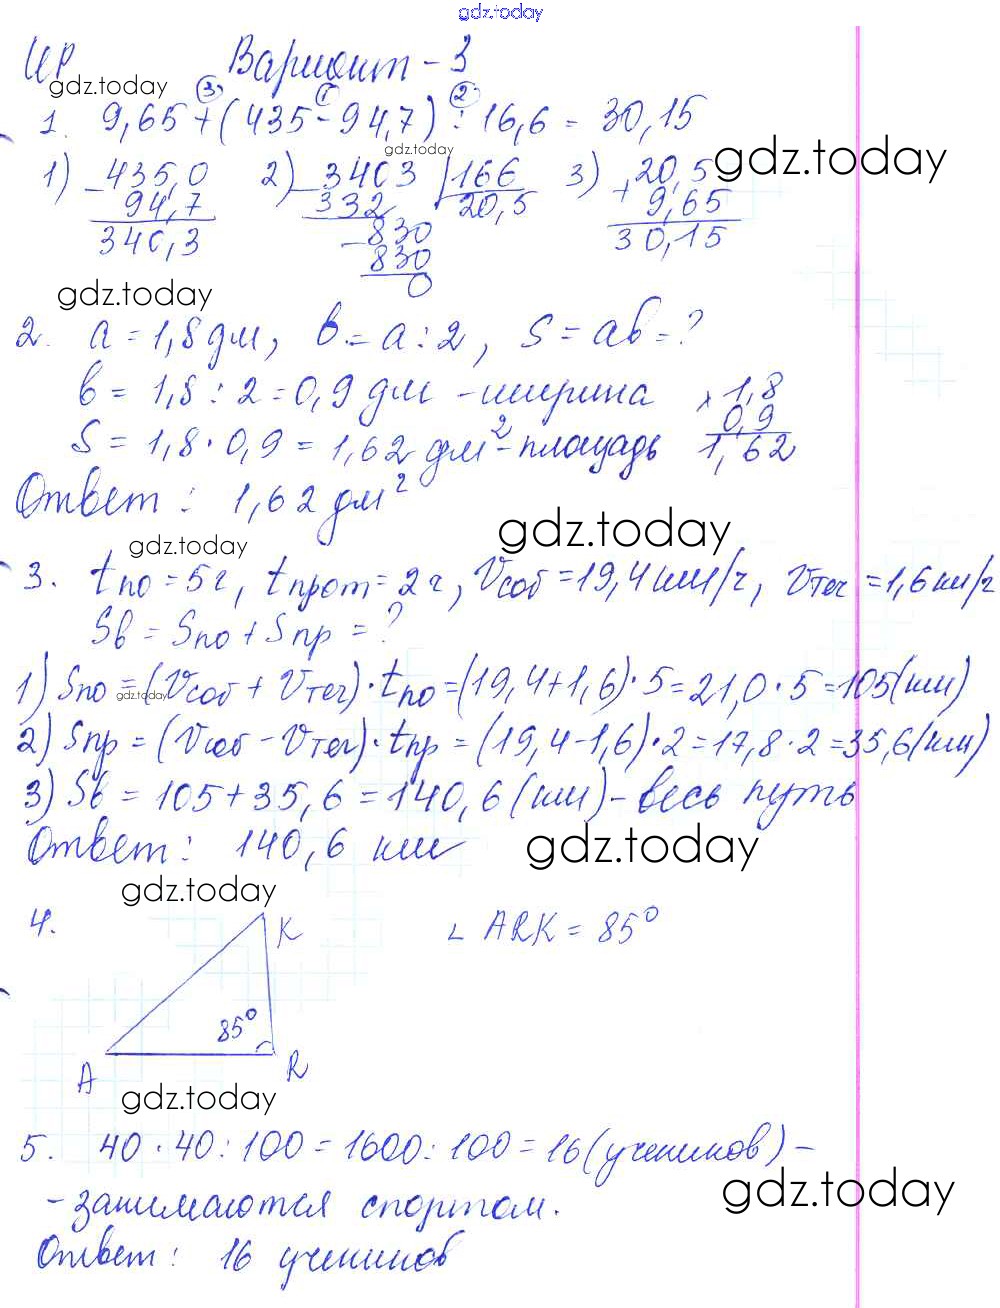 gdz.today
ИР Вариант - 3
gdz.today
③ ① ②
1. 9,65 + (435 - 94,7) : 16,6 = 30,15
gdz.today
gdz.today
1) 435,0 2) 3403 166 3) 20,5
- 94,7 - 332 20,5 + 9,65
340,3 - 830 30,15
830
0
gdz.today
2. a = 1,8 дм, в = a : 2, S = aв = ?
в = 1,8 : 2 = 0,9 дм - ширина × 1,8
0,9
S = 1,8 · 0,9 = 1,62 дм² - площадь 1,62
Ответ : 1,62 дм²
gdz.today
gdz.today
3. tпо = 5 ч, tпрот = 2 ч, Vсоб = 19,4 км/ч, Vтеч = 1,6 км/ч
Sв = Sпо + Sпр = ?
1) Sпо = (Vсоб + Vтеч) · tпо = (19,4 + 1,6) · 5 = 21,0 · 5 = 105 (км)
gdz.today
2) Sпр = (Vсоб - Vтеч) · tпр = (19,4 - 1,6) · 2 = 17,8 · 2 = 35,6 (км)
3) Sв = 105 + 35,6 = 140,6 (км) - весь путь
Ответ : 140,6 км
gdz.today
gdz.today
4. K ∟ ARK = 85°
85°
A R
gdz.today
5. 40 · 40 : 100 = 1600 : 100 = 16 (учеников) -
- занимаются спортом.
gdz.today
Ответ : 16 учеников